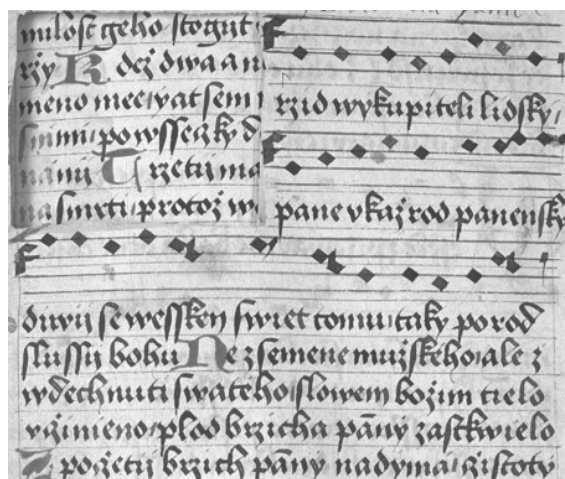 milost geho stogut
rzy Kdez dwa a n
meno mee wat sem
smi mi po wsseczky d
na mi Trzetii ma
na smrti protoz we
rzid wykupiteli lidsky
pane vkaz rod panensky
diwii se wessken swiet tomu taky porod
slussii bohu Ne z semene muzskeho ale z
wdechnuti swateho slowem bozim tielo
vczinieno plod brzicha pany zastkwielo
Z poczetii brzich pany nadyma czistoty